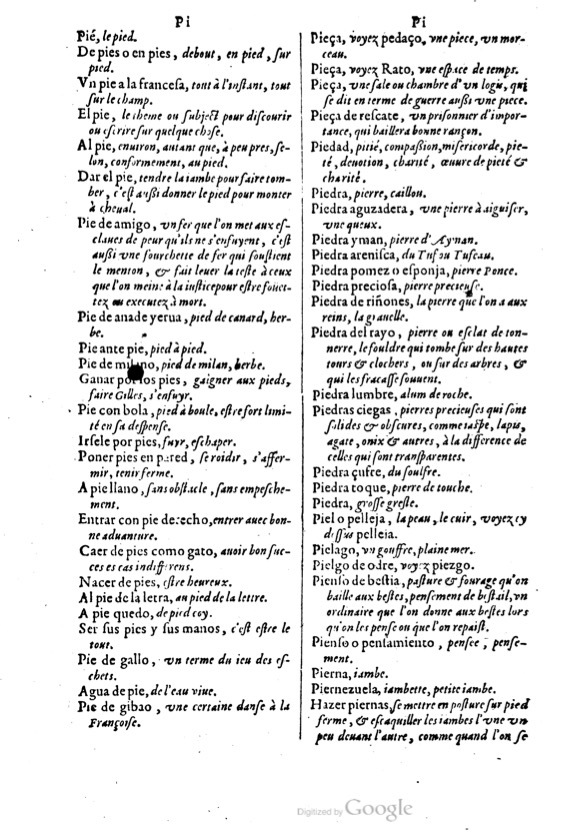 Pi
Pié, le pied.
De pies o en pies, debout, en pied, ſur
pied.
Vn pie a la franceſa, tout à l'inſtant, tout
ſur le champ.
El pie, le theme ou ſubject pour diſcourir
ou eſcrire ſur quelque choſe.
Al pie, enuiron, autant que, à peu pres, ſe-
lon, conformement, au pied.
Dar el pie, tendre la iambe pour faire tom-
ber, c'eſt auſsi donner le pied pour monter
à cheual.
Pie de amigo, vn fer que l'on met aux eſ-
claues de peur qu'ils ne s'enfuyent, c'eſt
auſsi vne fourchette de fer qui ſouſtient
le menton, & fait leuer la teſte à ceux
que l'on meine à la iuſtice pour eſtre fouet-
tez ou executez à mort.
Pie de anade yerua, pied de canard, her-
be.
Pie ante pie, pied à pied.
Pie de milano, pied de milan, herbe.
Ganar por los pies, gaigner aux pieds,
faire Gilles, s'enfuyr.
Pie con bola, pied à boule, eſtre fort limi-
té en ſa deſpenſe.
Irſele por pies, fuyr, eſchaper.
Poner pies en pared, ſe roidir, s'affer-
mir, tenir ferme.
A pie llano, ſans obſtacle, ſans empeſche-
ment.
Entrar con pie derecho, entrer auec bon-
ne aduanture.
Caer de pies como gato, auoir bon ſuc-
ces es cas indifferens.
Nacer de pies, eſtre heureux.
Al pie de la letra, au pied de la lettre.
A pie quedo, de pied coy.
Ser ſus pies y ſus manos, c'eſt eſtre le
tout.
Pie de gallo, vn terme du ieu des eſ-
chets.
Agua de pie, de l'eau viue.
Pie de gibao, vne certaine danſe à la
Françoiſe.
Pi
Pieça, voyez pedaço, vne piece, vn mor-
ceau.
Pieça, voyez Rato, vne eſpace de temps.
Pieça, vne ſale ou chambre d'vn logis, qui
ſe dit en terme de guerre auſsi vne piece.
Pieça de reſcate, vn priſonnier d'impor-
tance, qui baillera bonne rançon.
Piedad, pitié, compaſsion, miſericorde, pie-
té, deuotion, charité, œuure de pieté &
charité.
Piedra, pierre, caillou.
Piedra aguzadera, vne pierre à aiguiſer,
vne queux.
Piedra yman, pierre d'Aynan.
Piedra areniſca, du Tuf ou Tufeau.
Piedra pomez o eſponja, pierre Ponce.
Piedra precioſa, pierre precieuſe.
Piedra de riñones, la pierre que l'on a aux
reins, la grauelle.
Piedra del rayo, pierre ou eſclat de ton-
nerre, le fouldre qui tombe ſur des hautes
tours & clochers, ou ſur des arbres, &
qui les fracaſſe ſouuent.
Piedra lumbre, alum de roche.
Piedras ciegas, pierres precieuſes qui ſont
ſolides & obſcures, comme iaſpe, lapis,
agate, onix & autres, à la difference de
celles qui ſont tranſparentes.
Piedra çufre, du ſoulfre.
Piedra toque, pierre de touche.
Piedra, groſſe greſle.
Piel o pelleja, la peau, le cuir, voyez cy
deſſus pelleia.
Pielago, vn gouffre, plaine mer.
Pielgo de odre, voyez piezgo.
Pienſo de beſtia, paſture & fourage qu'on
baille aux beſtes, penſement de beſtail, vn
ordinaire que l'on donne aux beſtes lors
qu'on les penſe ou que l'on repaiſt.
Pienſo o penſamiento, penſee, penſe-
ment.
Pierna, iambe.
Piernezuela, iambette, petite iambe.
Hazer piernas, ſe mettre en poſture ſur pied
ferme, & eſcaquiller les iambes l'vne vn
peu deuant l'autre, comme quand l'on ſe
Digitized by Google